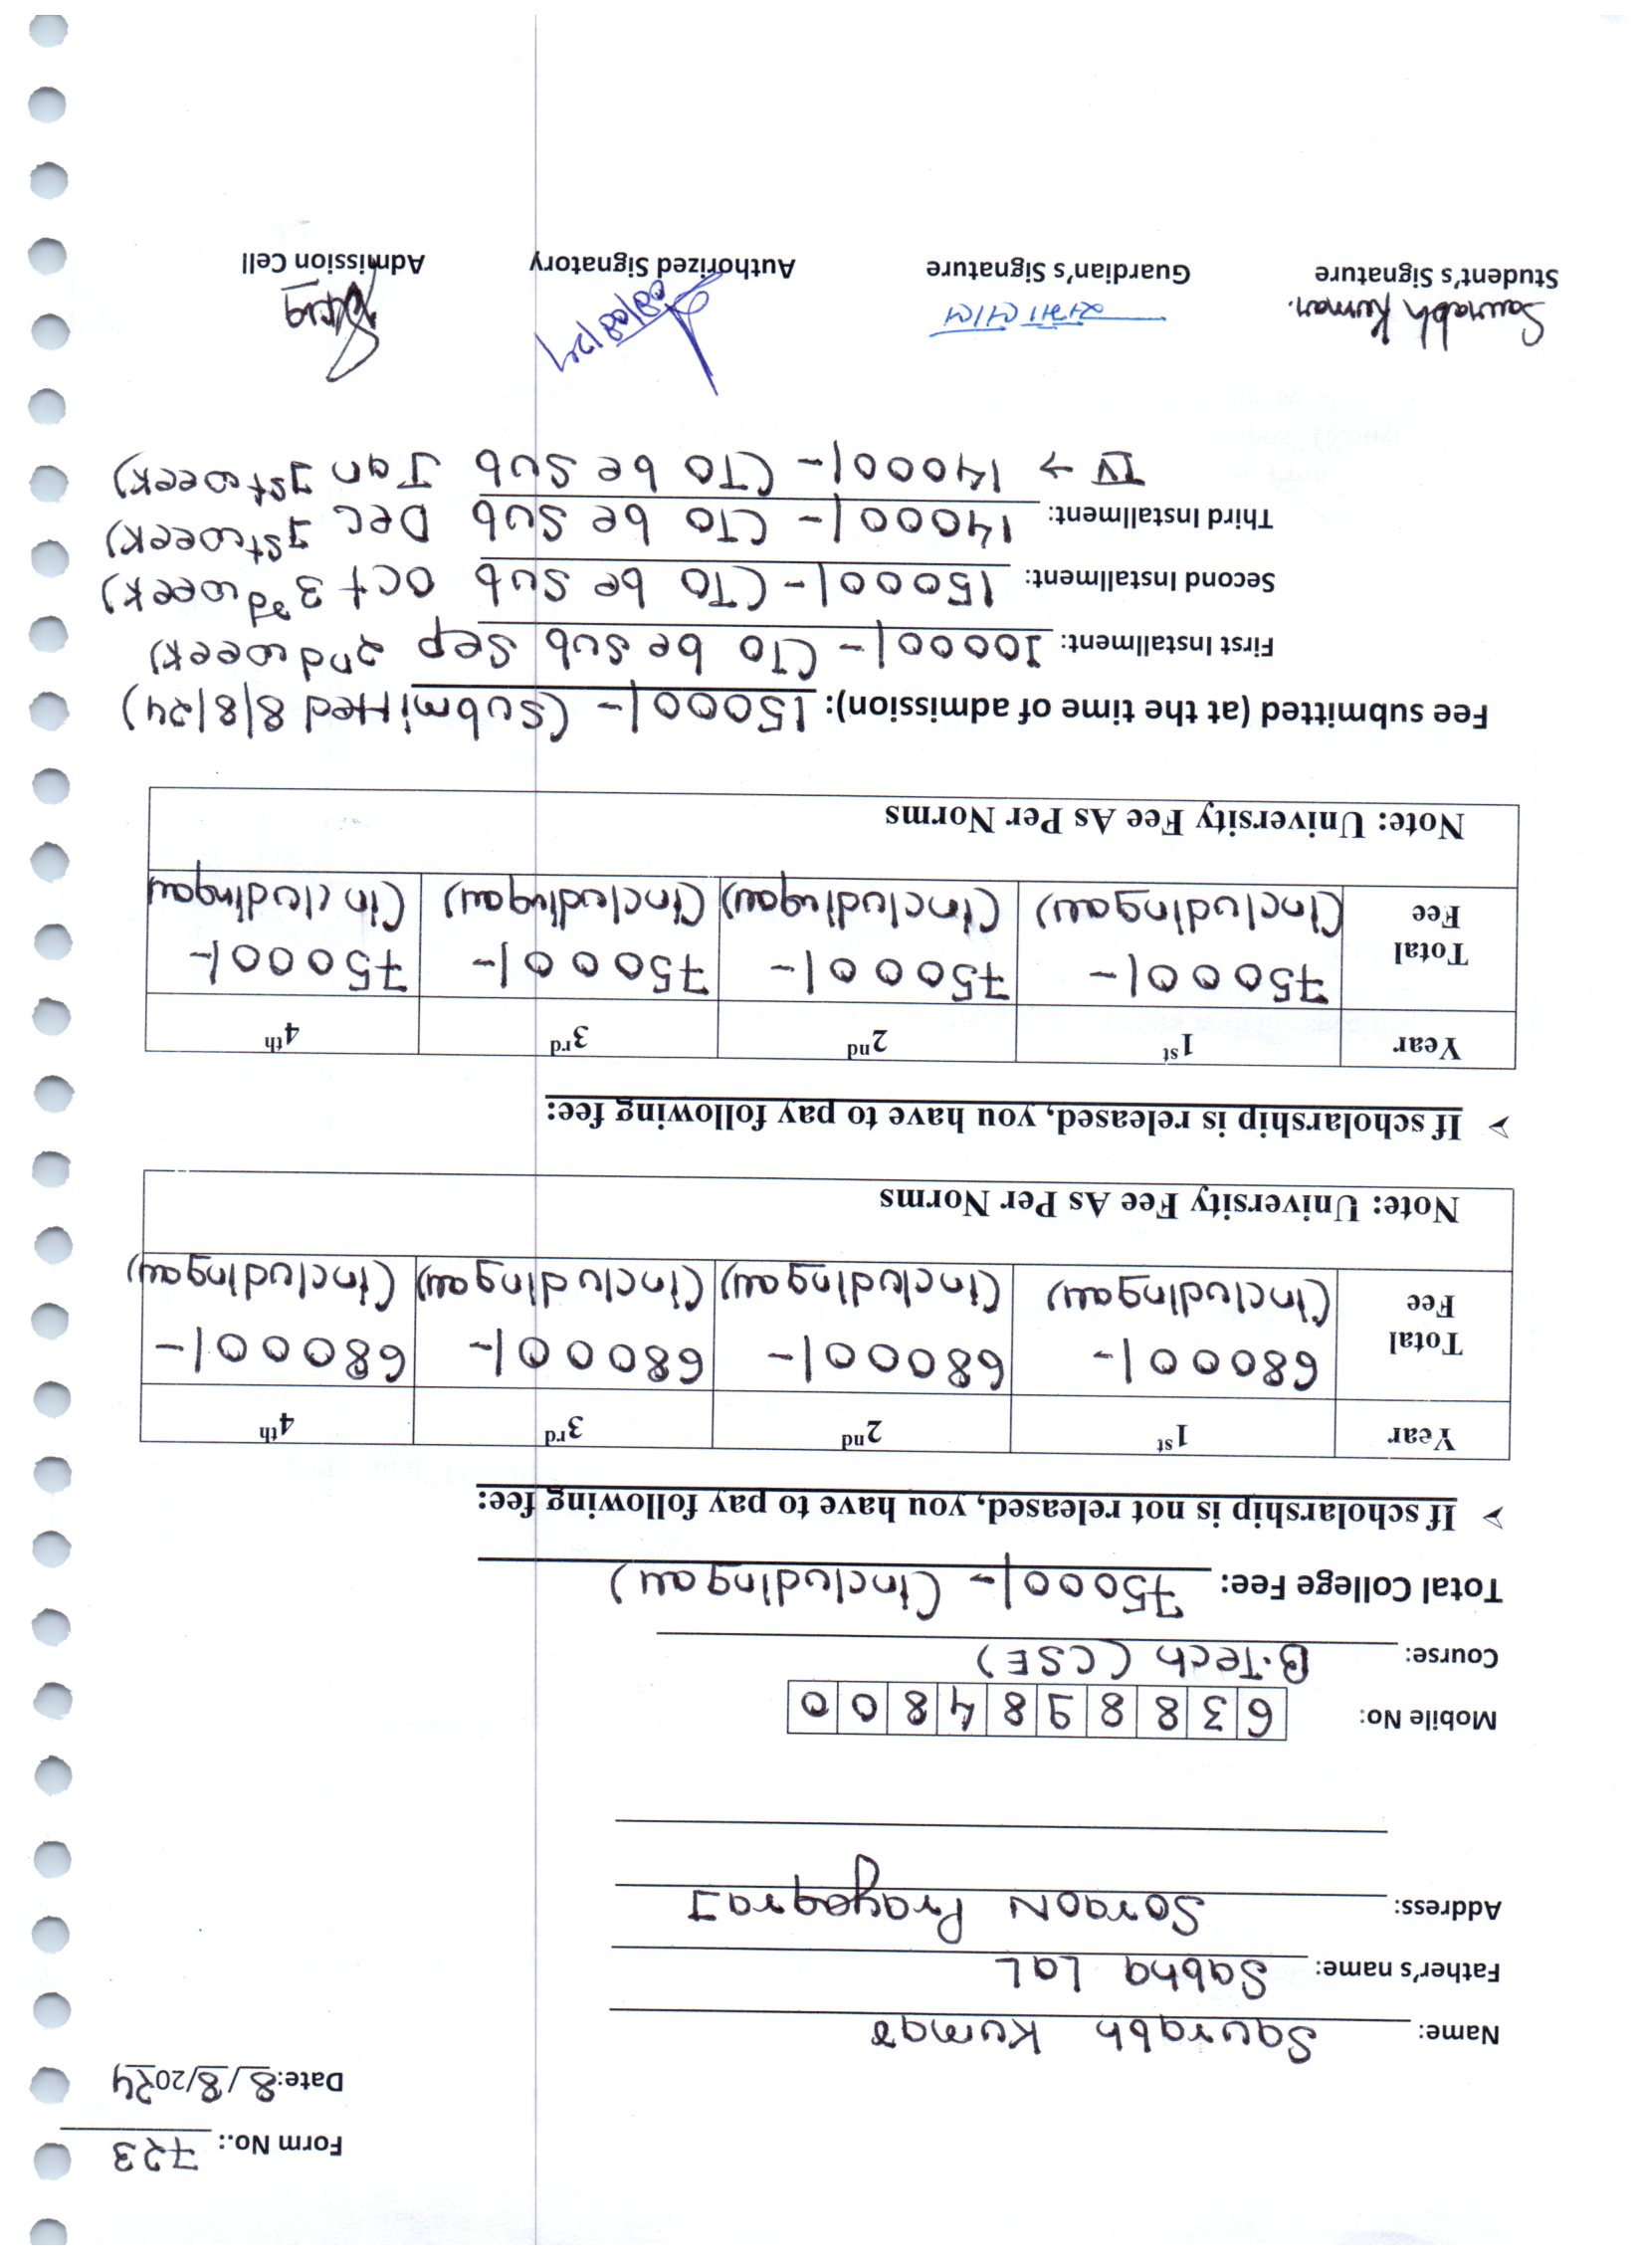 Form No.: 723
Date: 8/8/2024
Name: Saurabh Kumar
Father's name: Sabha Lal
Address: Soraon Prayagraj
Mobile No: 6388984800
Course: B.Tech (CSE)
Total College Fee: 75000/- (Including all)
➢ If scholarship is not released, you have to pay following fee:
Year 1st 2nd 3rd 4th
Total Fee 68000/- 68000/- 68000/- 68000/-
(Including all) (Including all) (Including all) (Including all)
Note: University Fee As Per Norms
➢ If scholarship is released, you have to pay following fee:
Year 1st 2nd 3rd 4th
Total Fee 75000/- 75000/- 75000/- 75000/-
(Including all) (Including all) (Including all) (Including all)
Note: University Fee As Per Norms
Fee submitted (at the time of admission): 15000/- (Submitted 8/8/24)
First Installment: 10000/- (To be sub Sep 2nd week)
Second Installment: 15000/- (To be sub Oct 3rd week)
Third Installment: 14000/- (To be sub Dec 1st week)
IV → 14000/- (To be sub Jan 1st week)
Saurabh Kumar. 08/08/24
Student's Signature Guardian's Signature Authorized Signatory Admission Cell